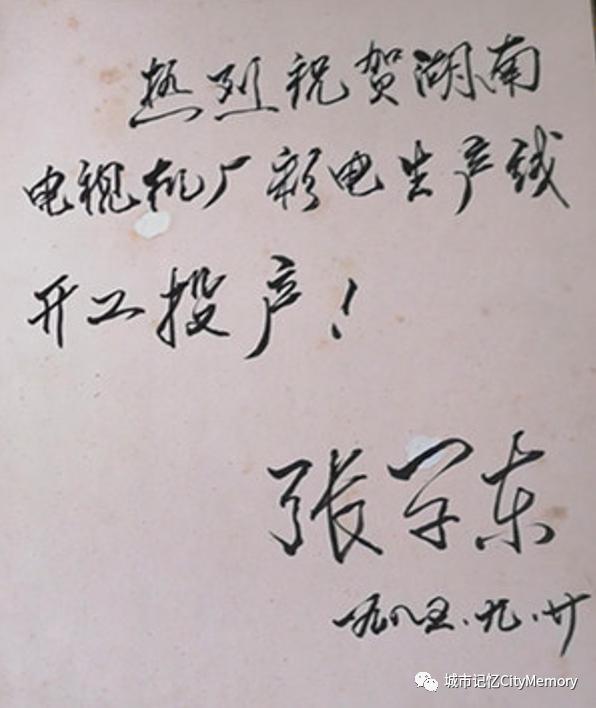 热烈祝贺湖南
电视机厂彩电生产线
开工投产！
张学东
一九八五.九.廿
城市记忆CityMemory